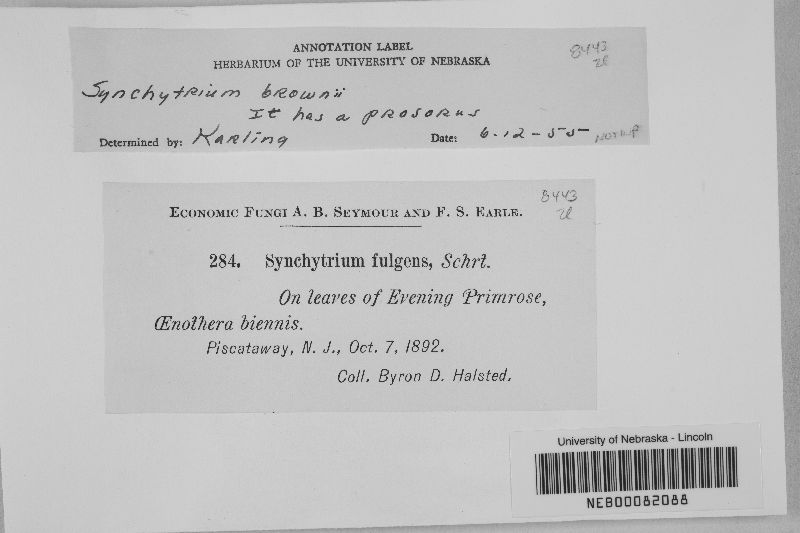 ANNOTATION LABEL
HERBARIUM OF THE UNIVERSITY OF NEBRASKA
8443
Synchytrium brownii
It has a prosorus
Determined by: Karling Date: 6-12-55
8443
ECONOMIC FUNGI A. B. SEYMOUR AND F. S. EARLE.
284. Synchytrium fulgens, Schrt.
On leaves of Evening Primrose,
Œnothera biennis.
Piscataway, N. J., Oct. 7, 1892.
Coll. Byron D. Halsted.
University of Nebraska - Lincoln
NEB00082088